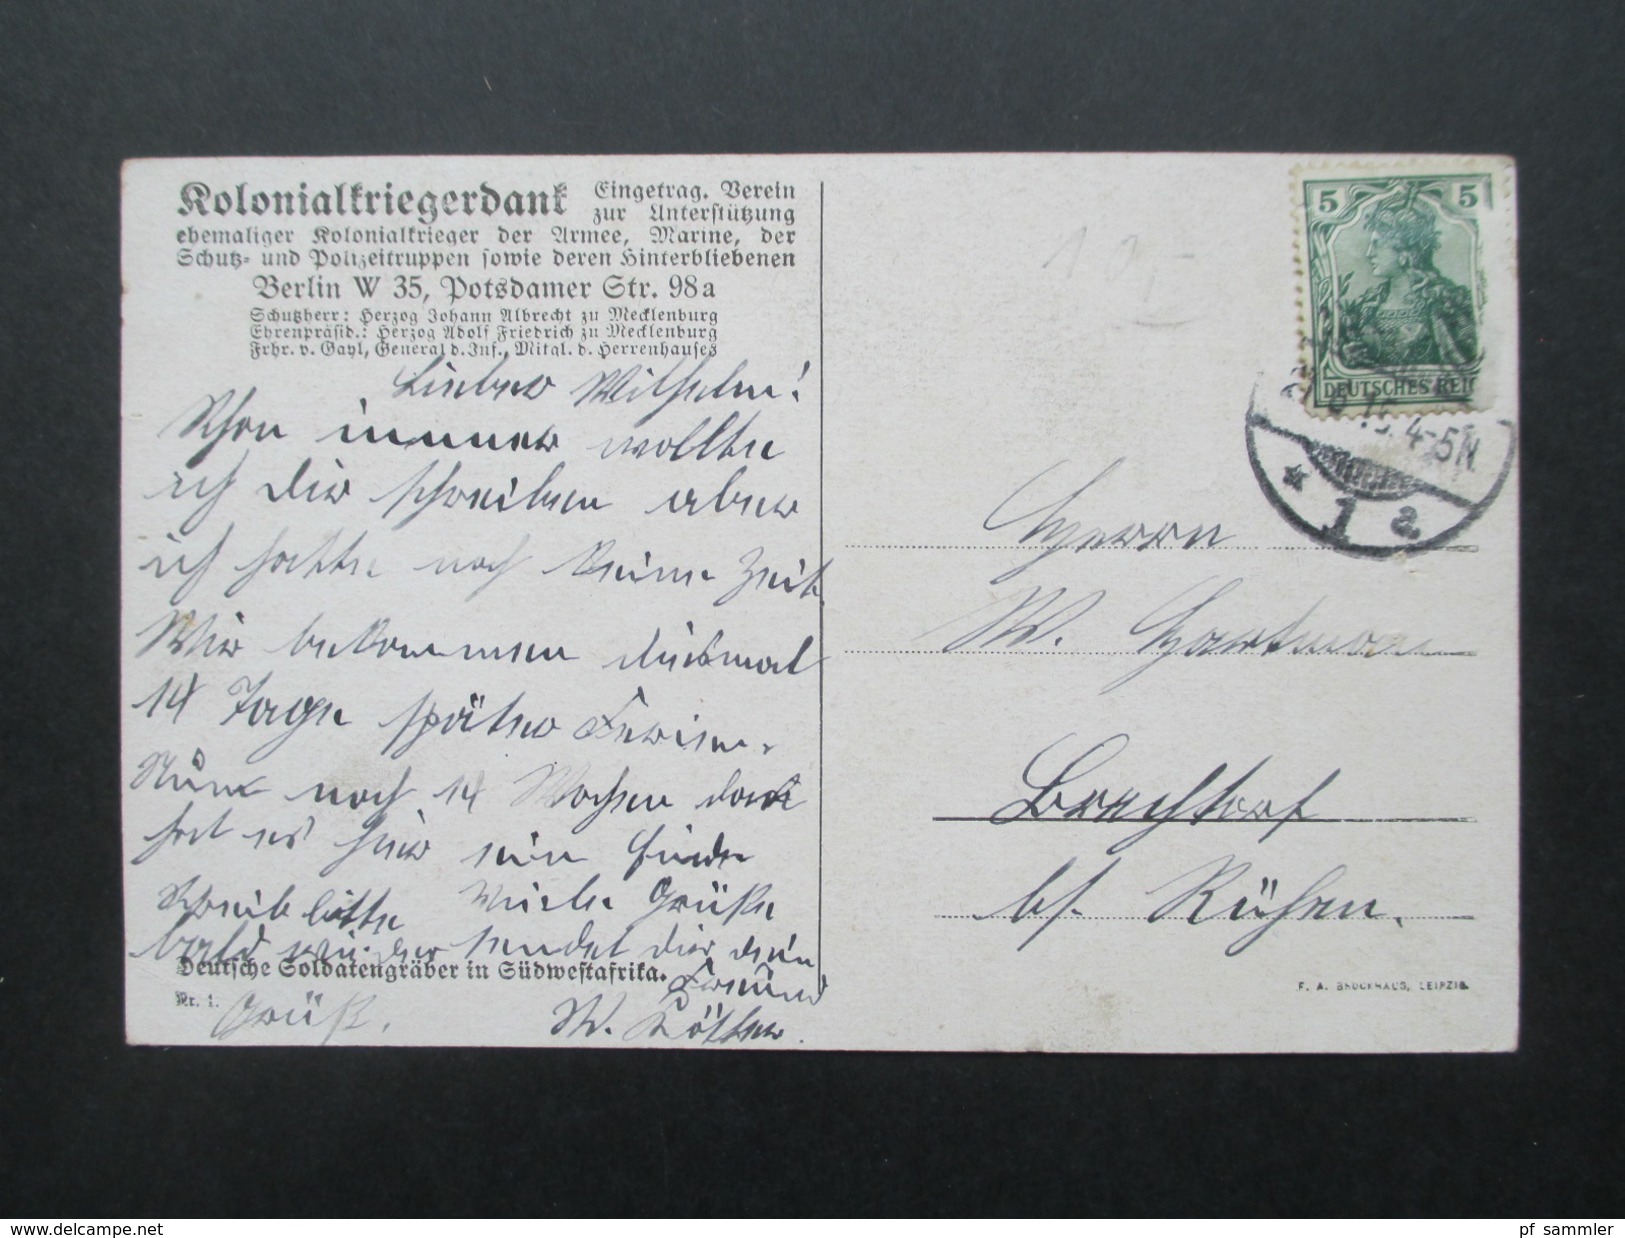 Kolonialkriegerdank Eingetrag. Verein
zur Unterstützung
ehemaliger Kolonialkrieger der Armee, Marine, der
Schutz- und Polizeitruppen sowie deren Hinterbliebenen
Berlin W 35, Potsdamer Str. 98a
Schutzherr: Herzog Johann Albrecht zu Mecklenburg
Ehrenpräsid.: Herzog Adolf Friedrich zu Mecklenburg
Frhr. v. Gayl, General d. Inf., Mitgl. d. Herrenhauses
Lieber Wilhelm!
Schon immer wollte
ich Dir schreiben aber
ich hatte noch keine Zeit.
Wir bekommen diesmal
14 Tage später Ferien.
noch 14 Wochen
hat es hier sein Ende
Schreib bitte Viele Grüße
bald wieder sendet dir dein
Freund
Deutsche Soldatengräber in Südwestafrika.
Nr. 1.
Gruß.
W. Köther.
5 5
DEUTSCHES REIC
4-5N
* 1 a
Herrn
W. Hartmann
Brechtorf
bf. Rühen.
F. A. BROCKHAUS, LEIPZIG
http://www.delcampe.net
pf_sammler